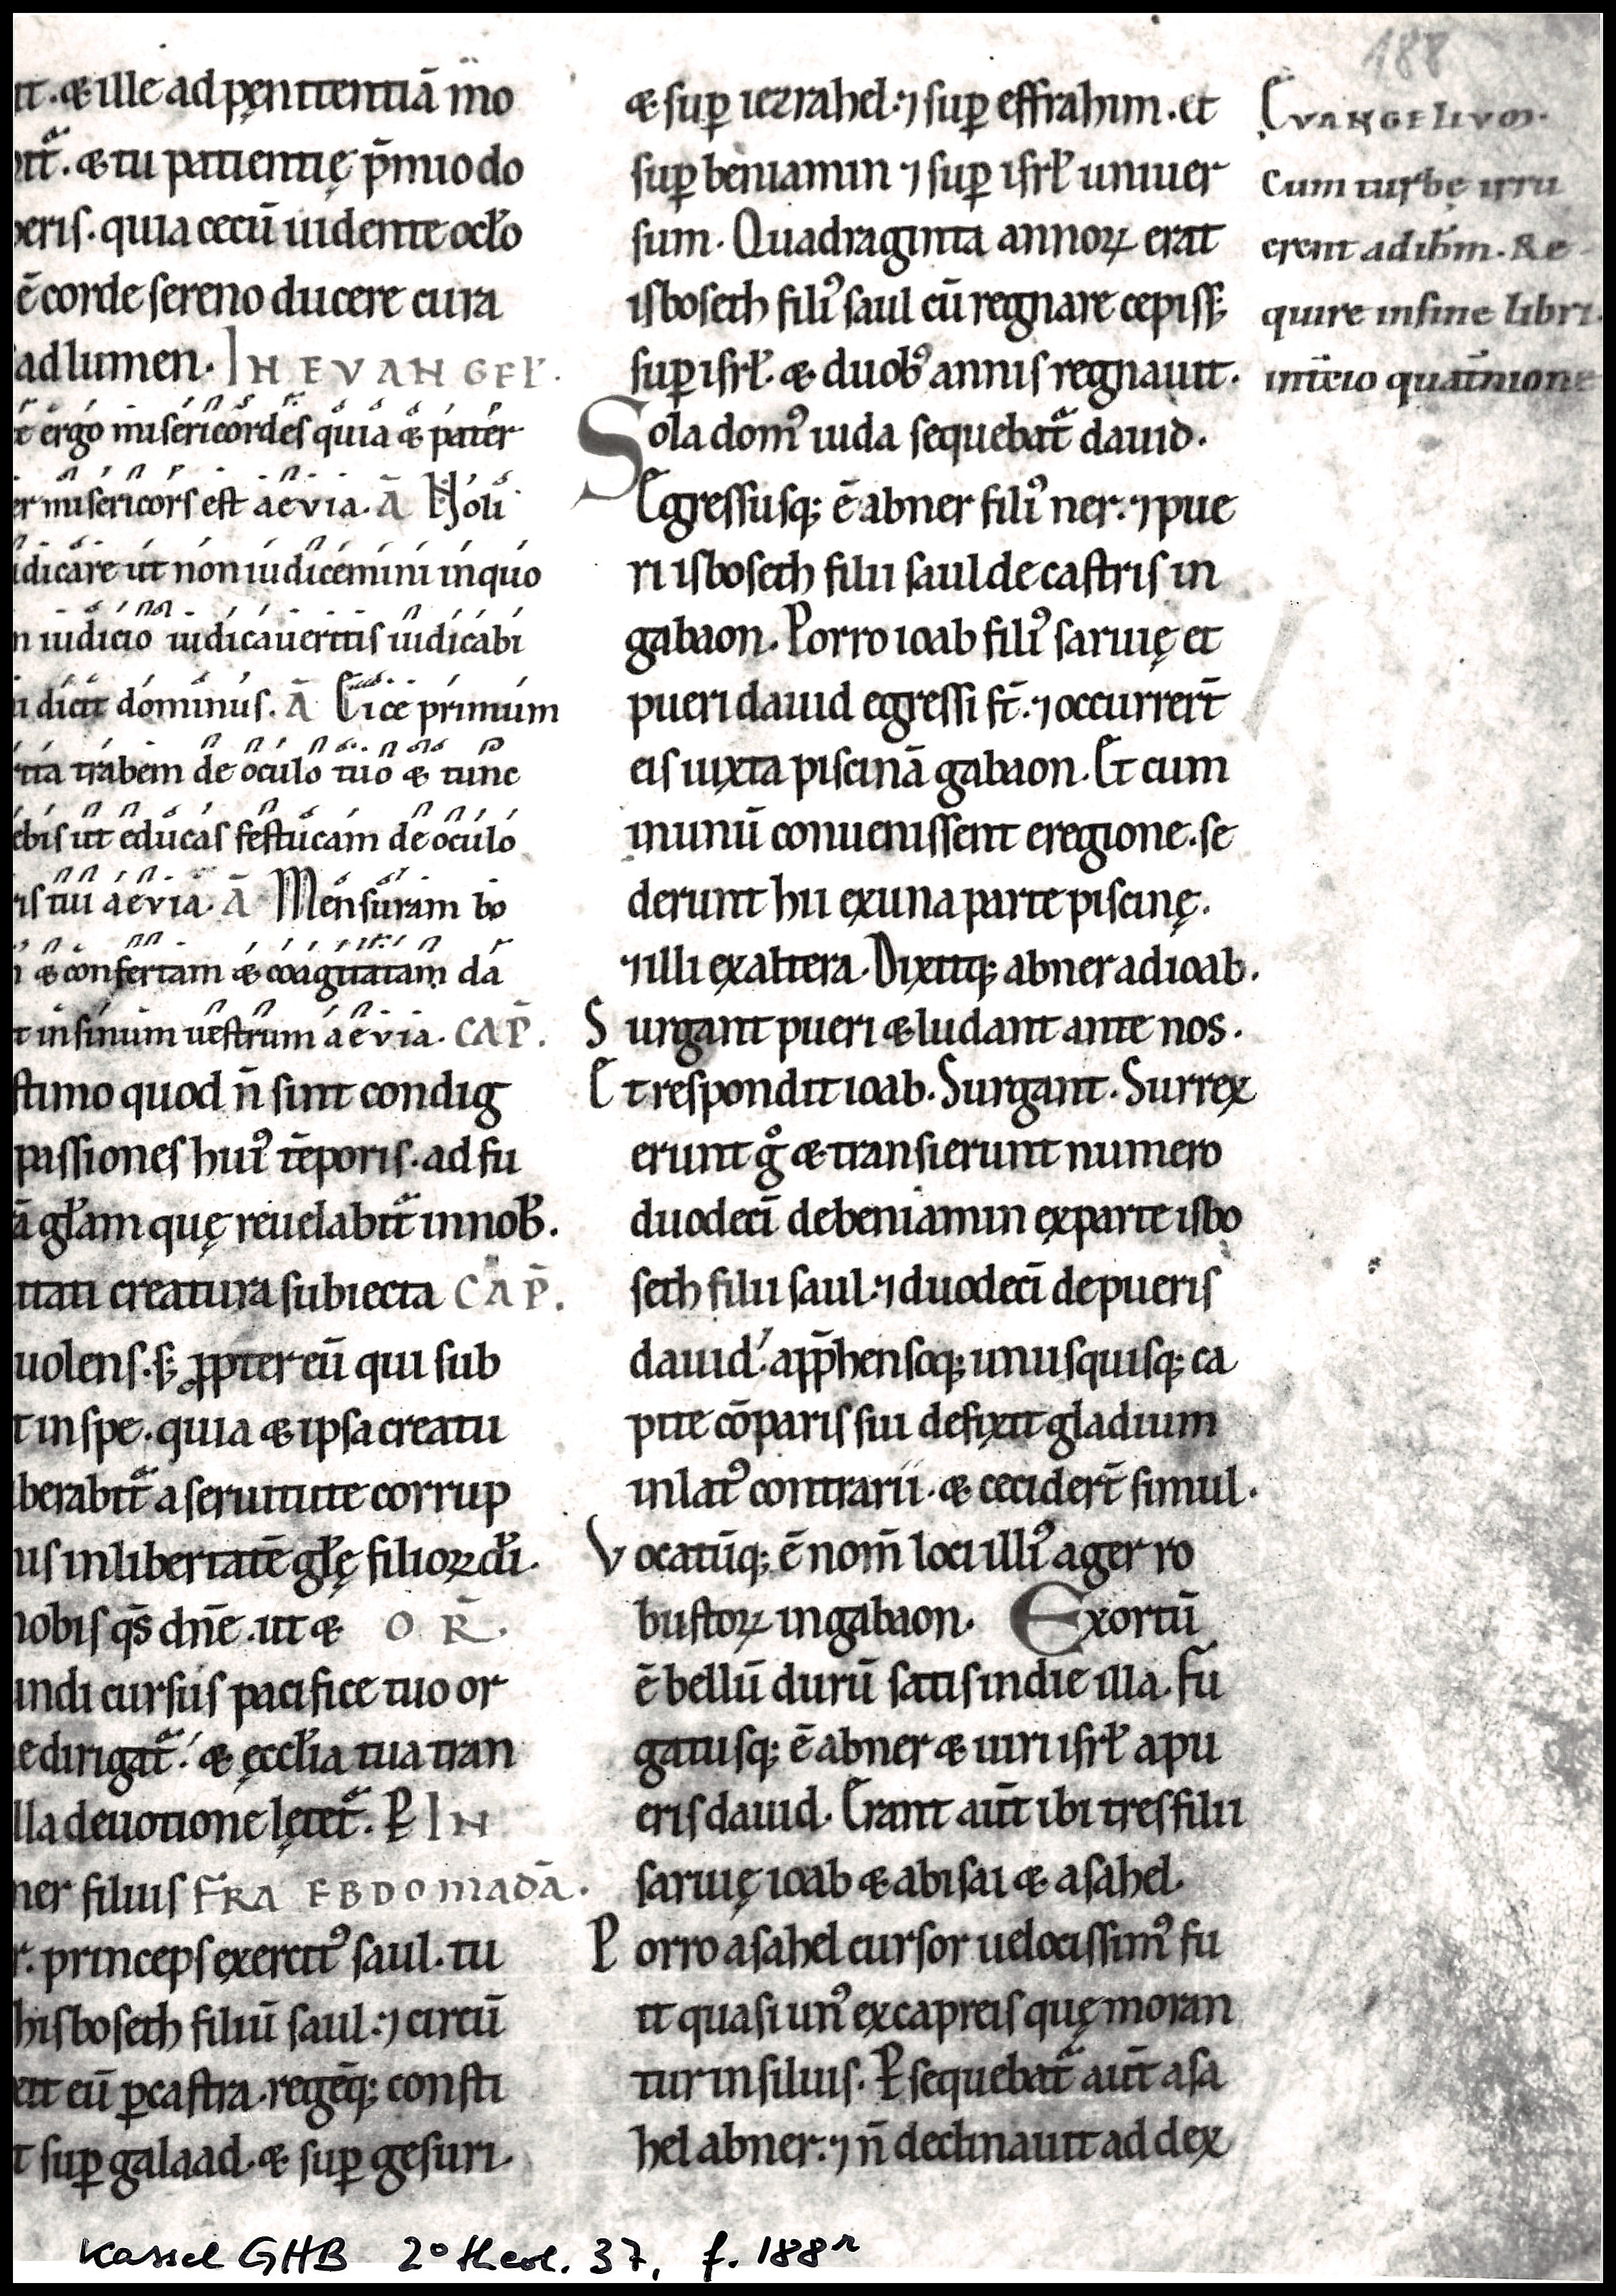 188
it. & ille ad pęnitentiā mo
itᷓ. & tu patientię p̄mio do
peris. quia cecū uidente oclo
ē corde sereno ducere cura
ad lumen. IN EVANGEL̄.
ergo misericordes quia & pater
er misericors est aevia. Ā Noli
udicare ut non iudicemini in quo
n iudicio iudicaueritis iudicabi
i dicit dominus. Ā Eice primum
rita trabem de oculo tuo & tunc
ebis ut educas festucam de oculo
is tui aevia. Ā Mensuram bo
& confertam & coagitatam da
t in sinum uestrum aevia. CAP̄.
stimo quod n̄ sint condig
passiones huiꝰ tēporis. ad fu
ā gl̄am quę reuelabitᷓ in nob̄.
nitati creatura subiecta CAP̄.
uolens. s; ꝓpter eū qui sub
t in spe. quia & ipsa creatu
iberabitᷓ a seruitute corrup
us in libertatē gl̄ę filioꝝ di̅.
nobis q̄s dn̄e. ut & OR̄.
undi cursus pacifice tuo or
e dirigatᷓ. & ęccl̄ia tua tran
lla deuotione lętetᷓ. P IN
ner filius FRA EBDOMADĀ.
r. princeps exercitꝰ saul. tu
hisboseth filiū saul. ⁊ circū
xit eū ꝑ castra. regēq; consti
t sup̱ galaad. & sup̱ gesuri
& sup̱ iezrahel. ⁊ sup̱ effrahim. et
sup̱ beniamin ⁊ sup̱ isrl̄ uniuer
sum. Quadraginta annoꝝ erat
isboseth filiꝰ saul cū regnare cepiss;
sup̱ isrl̄. & duobꝰ annis regnauit.
Sola domꝰ iuda sequebatᷓ dauid.
Egressusq; ē abner filiꝰ ner. ⁊ pue
ri isboseth filii saul de castris in
gabaon. Porro ioab filiꝰ saruię et
pueri dauid egressi st̄. ⁊ occurrert̄
eis iuxta piscinā gabaon. Et cum
in unū conuenissent e regione. se
derunt hii ex una parte piscinę.
⁊ illi ex altera. Dixitq; abner ad ioab.
Surgant pueri & ludant ante nos.
Et respondit ioab. Surgant. Surrex
erunt gͦ & transierunt numero
duodecī de beniamin ex parte isbo
seth filii saul. ⁊ duodecī de pueris
dauid. app̄hensoq; unusquisq; ca
pite cōparis sui defixit gladium
in latꝰ contrarii. & ceciderт̄ simul.
Vocatūq; ē nom̄ loci illiꝰ ager ro
bustoꝝ in gabaon. Exortū
ē bellū durū satis in die illa. fu
gatusq; ē abner & uiri isrl̄ a pu
eris dauid. Erant aut̄ ibi tres filii
saruię ioab & abisai & asahel.
Porro asahel cursor uelocissimꝰ fu
it quasi unꝰ ex capreis quę moran
tur in siluis. Psequebatᷓ aut̄ asa
hel abner. ⁊ n̄ declinauit ad dex
EVANGELIVM.
Cum turbę irru
erent ad ihm̄. Re
quire in fine libri.
initio quat̄nione
Kassel GHB 2° theol. 37, f. 188r